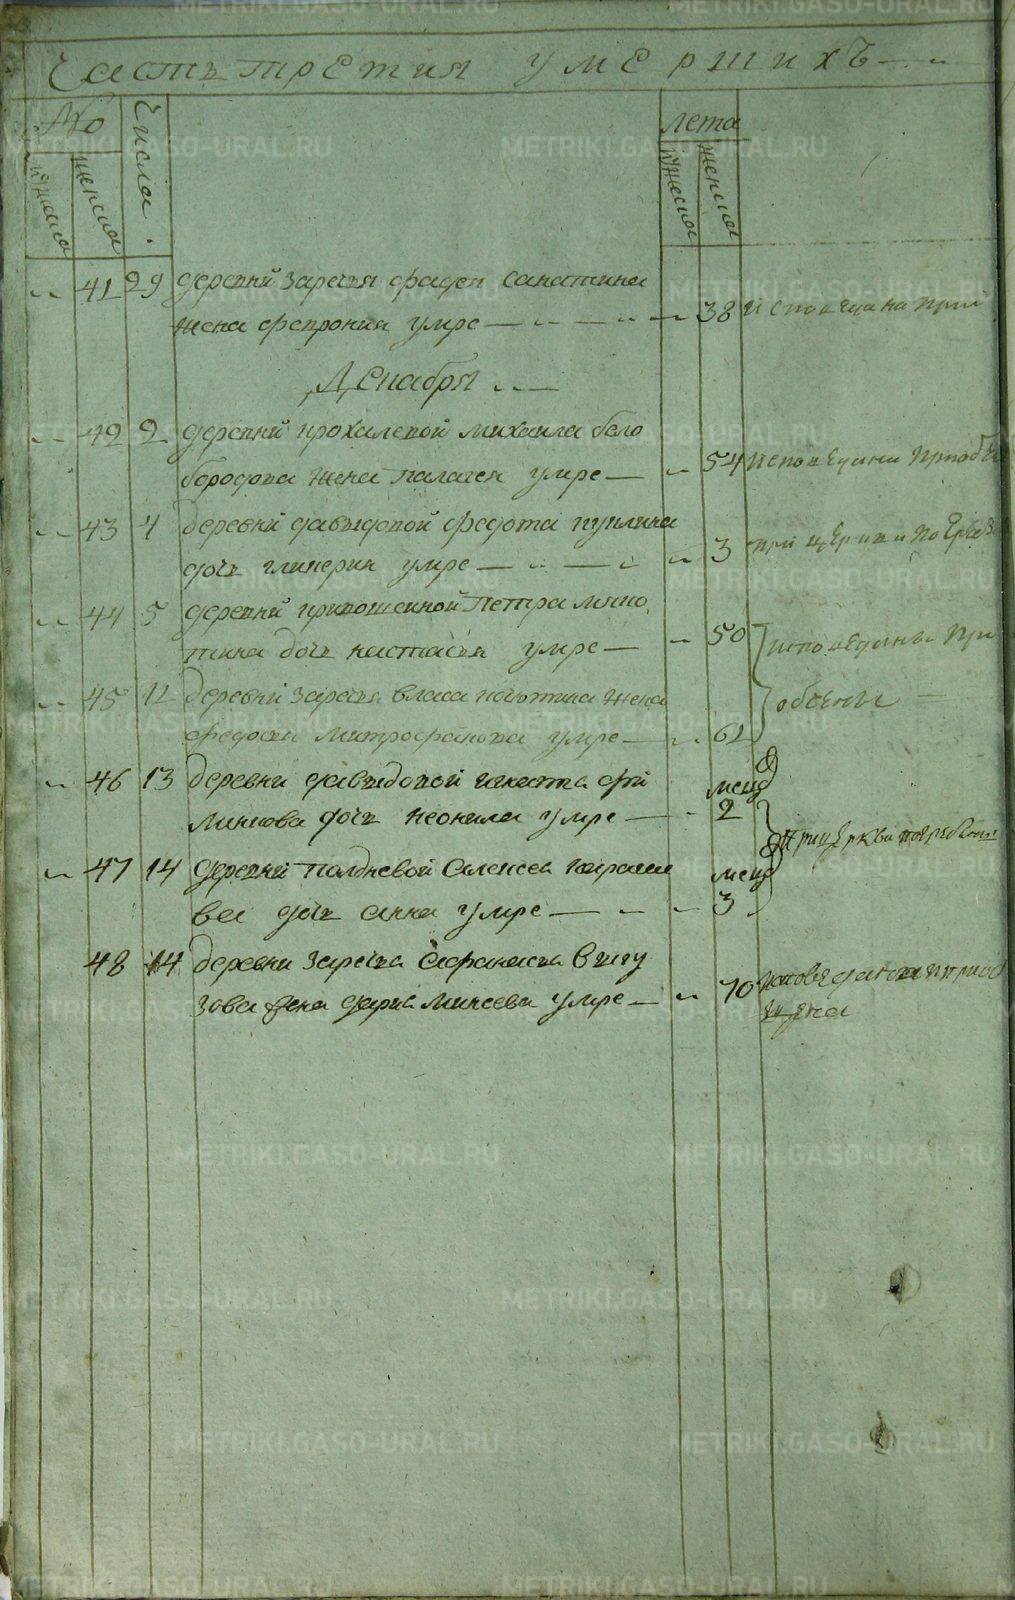 Часть третия умершихъ
№
Числа
лета
мужеска
женска
мужеска
женска
41 29 деревни Заречья фадея Санатина
жена феврония умре 38 исповедана при
Декабря
42 2 деревни прохалевой михаила бело
бородова жена палагея умре 54 исповедана приобще
43 4 деревни давыдовой федота пуплина
дочь гликерия умре 3 при церкви погребе
44 5 деревни кривошеиной Петра
тина дочь настасья умре 50 исповеданы при
45 12 деревни заречья власа жена
федосья митрофанова умре 62 общены
46 13 деревни давыдовой игната фи
липова дочь неонила умре месяц 2
при церкви погребены
47 14 деревни полдневой алексея
ва дочь анна умре месяц 3
48 14 деревни заречья Афанасья
зова жена дарья михеева умре 70 исповедана и приоб
щена
METRIKI.GASO-URAL.RU